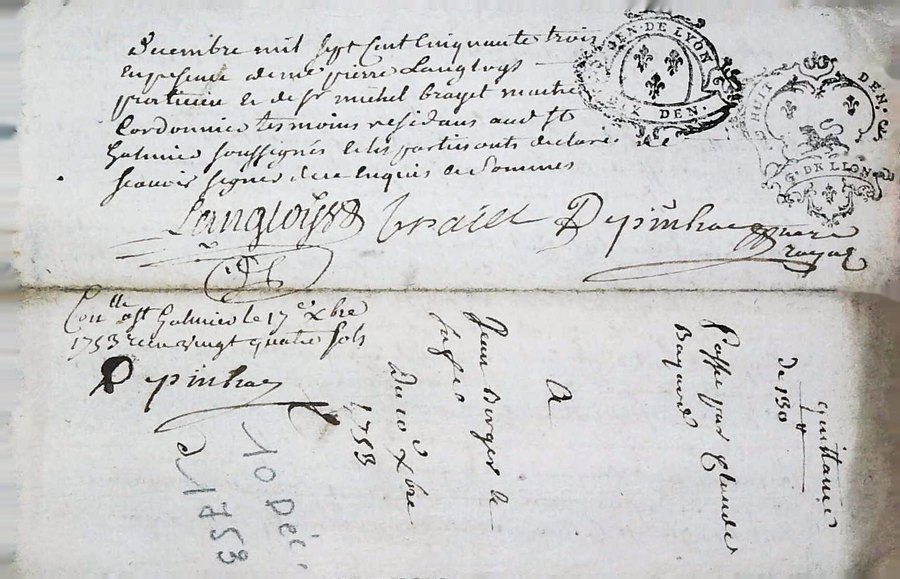 decembre mil sept cent Cinquante trois
en presence de me pierre Langloys
praticien et de sr michel brayet maitre
Cordonnier temoins residans audt St
Galmier soussignés et les partis ont declaré ne
scavoir signer de ce enquis et Sommés
Langloys
braiet
Depinhac
notaire
royal
GEN. DE LYON
DEN.
HUIT DEN.
G. DE LION
Conlle a St Galmier le 17e xbre
1753 recu vingt quatre sols
Depinhac
quittance
de 130 #
Passé par Claude
Bayard
A
Jean Berger le
Du 10e xbre
1753
10 Déc.
1753